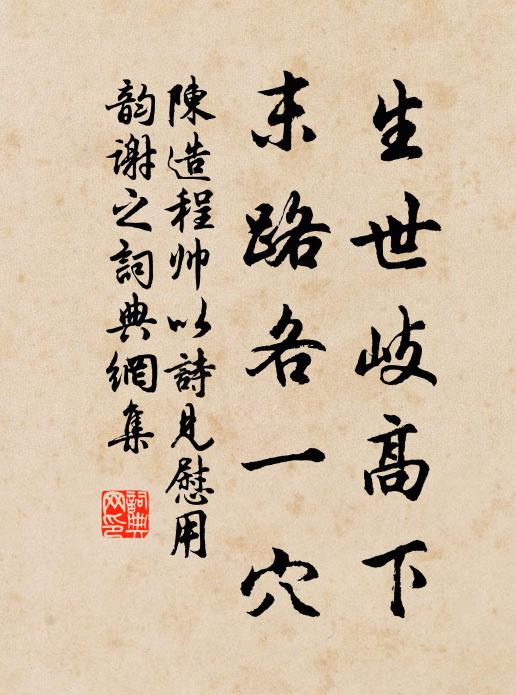 生世岐高下
末路各一穴
陳造程帅以詩見慰用
韵谢之詞典網集
詞典
网印